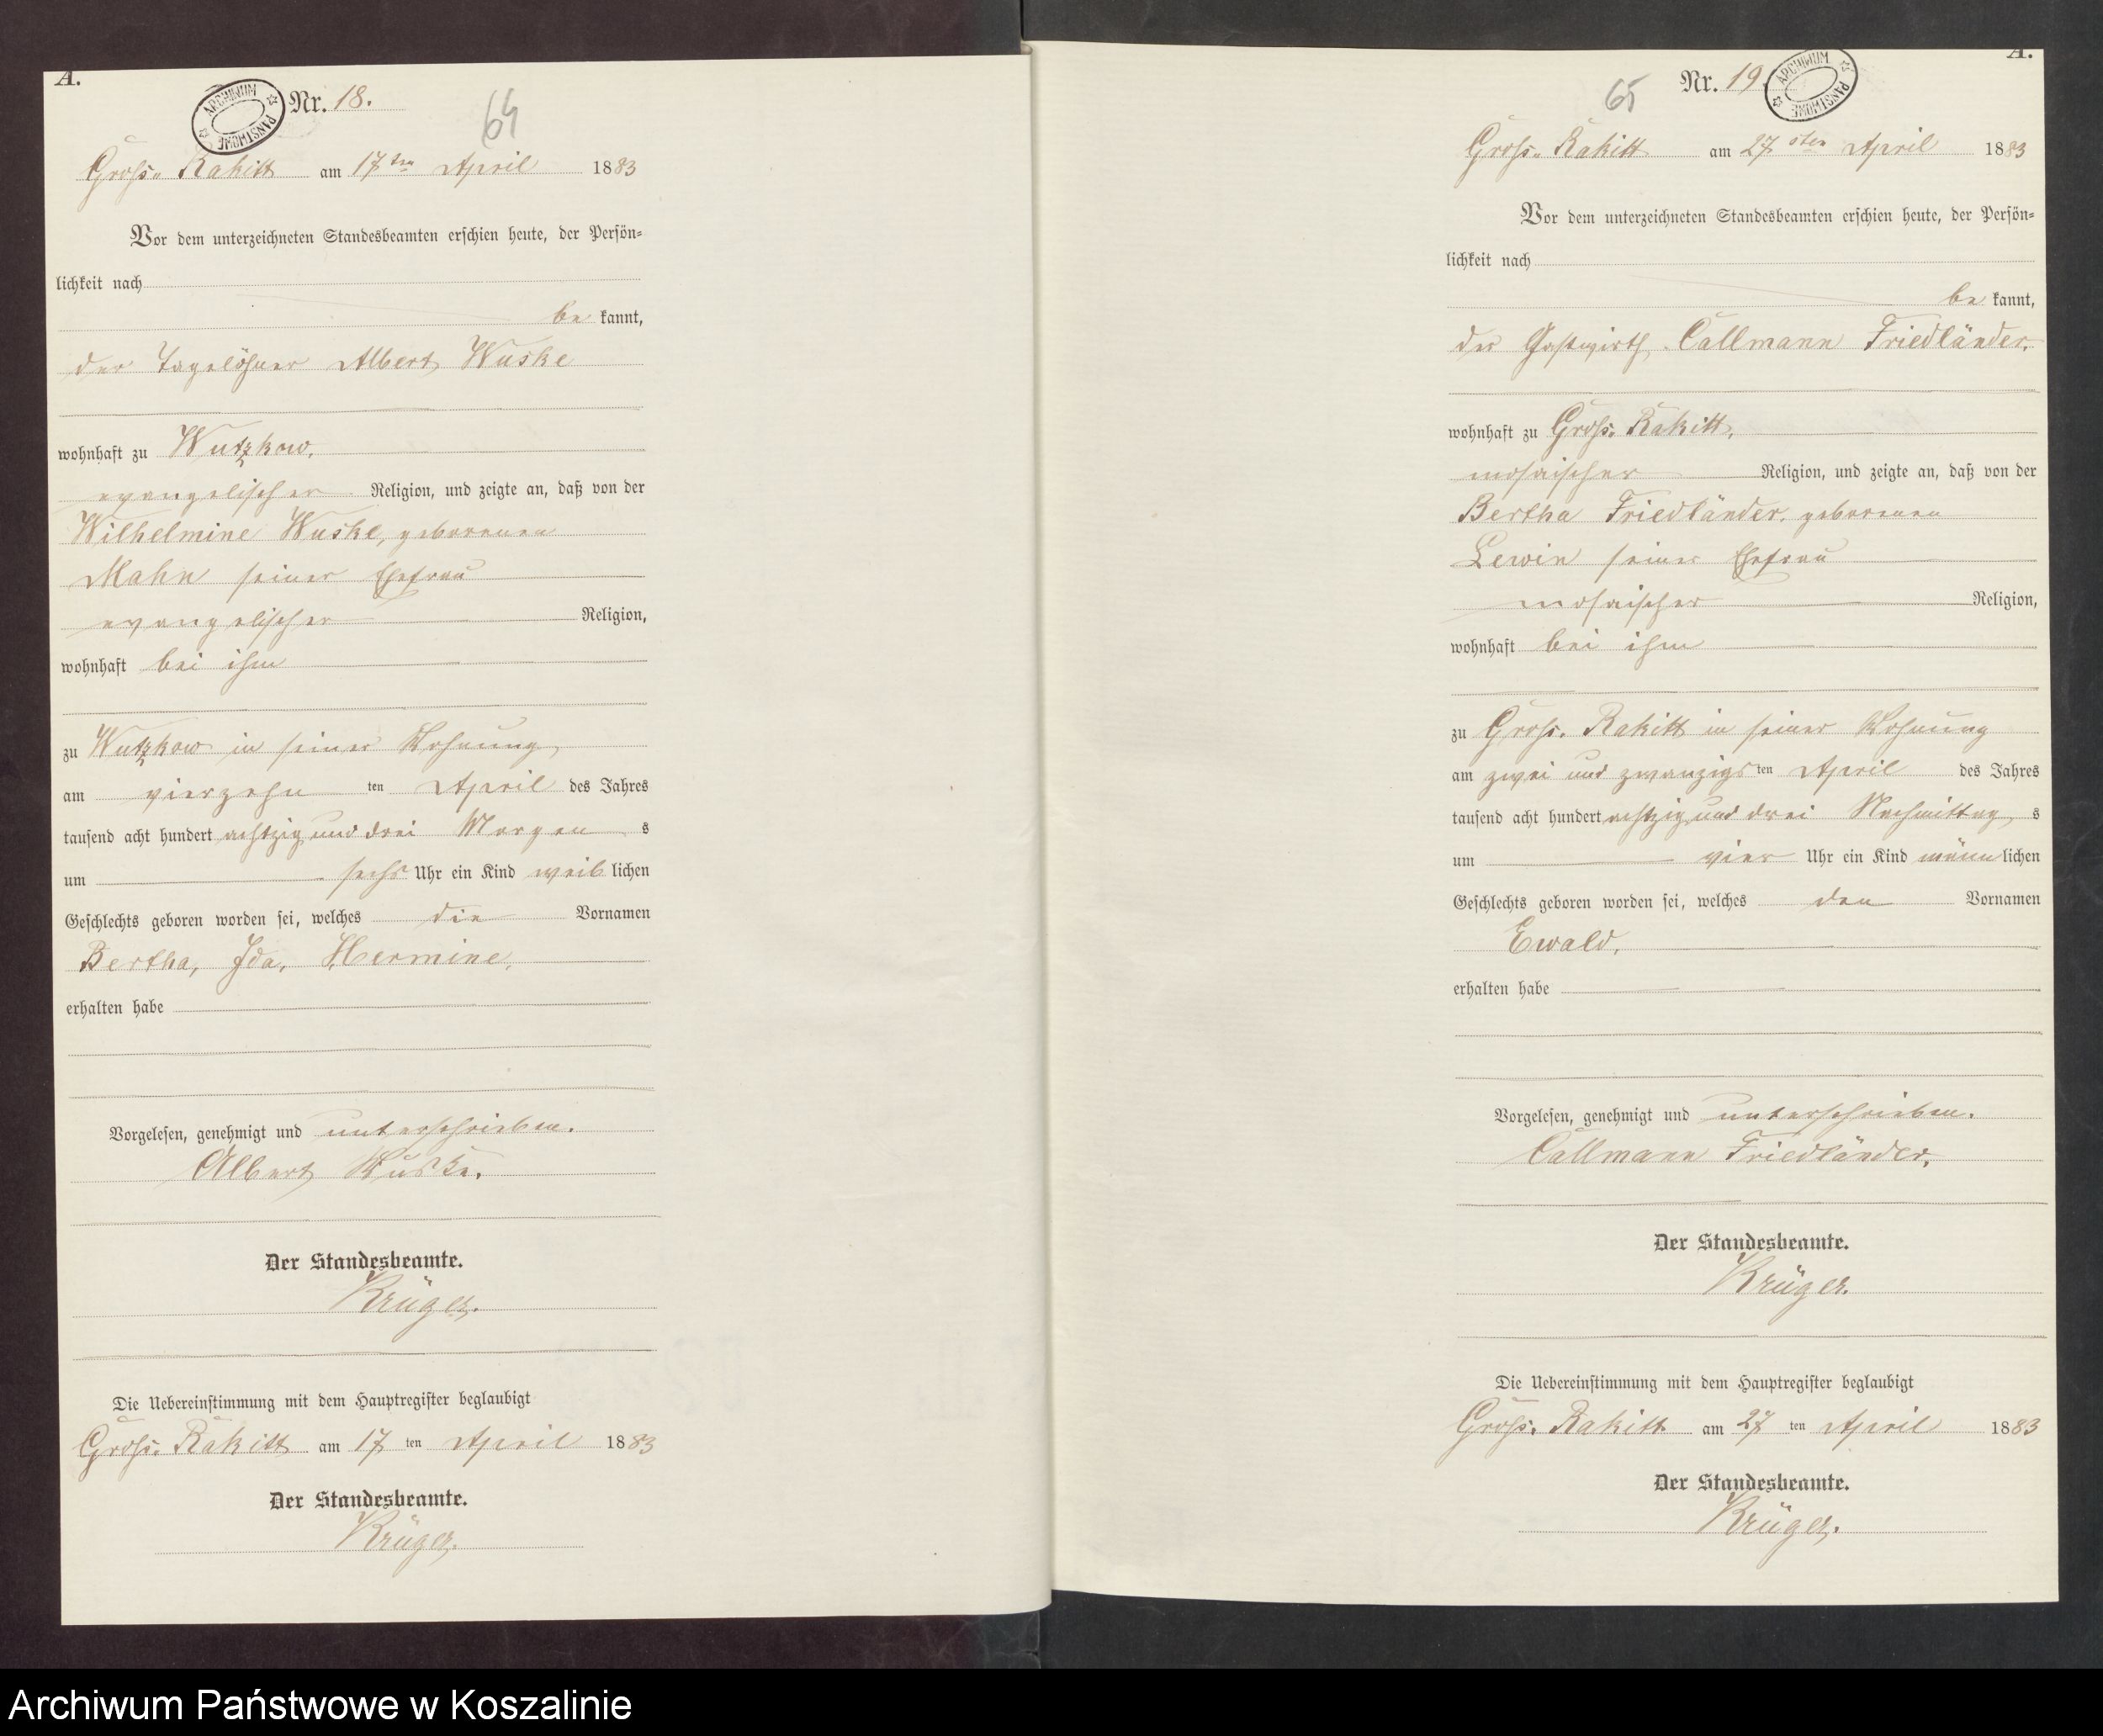 A.
ARCHIWUM PAŃSTWOWE
Nr. 18.
64
Groß- Rakitt am 17ten April 1883
Vor dem unterzeichneten Standesbeamten erschien heute, der Persön-
lichkeit nach
be kannt,
der Tagelöhner Albert Wuske
wohnhaft zu Wutzkow.
evangelischer Religion, und zeigte an, daß von der
Wilhelmine Wuske, geborenen
Mahn seiner Ehefrau
evangelischer Religion,
wohnhaft bei ihm
zu Wutzkow in seiner Wohnung
am vierzehn ten April des Jahres
tausend acht hundert achtzig und drei Morgen s
um sechs Uhr ein Kind weib lichen
Geschlechts geboren worden sei, welches die Vornamen
Bertha, Ida, Hermine,
erhalten habe
Vorgelesen, genehmigt und unterschrieben.
Albert Wuske.
Der Standesbeamte.
Krüger.
Die Uebereinstimmung mit dem Hauptregister beglaubigt
Groß- Rakitt am 17 ten April 1883
Der Standesbeamte.
Krüger.
A.
65
Nr. 19.
ARCHIWUM PAŃSTWOWE
Groß- Rakitt am 27sten April 1883
Vor dem unterzeichneten Standesbeamten erschien heute, der Persön-
lichkeit nach
be kannt,
der Gastwirth Callmann Friedländer.
wohnhaft zu Groß- Rakitt.
mosaischer Religion, und zeigte an, daß von der
Bertha Friedländer, geborenen
Lewin seiner Ehefrau
mosaischer Religion,
wohnhaft bei ihm
zu Groß. Rakitt in seiner Wohnung
am zwei und zwanzigs ten April des Jahres
tausend acht hundert achtzig und drei Nachmittag s
um vier Uhr ein Kind männ lichen
Geschlechts geboren worden sei, welches den Vornamen
Ewald.
erhalten habe
Vorgelesen, genehmigt und unterschrieben.
Callmann Friedländer.
Der Standesbeamte.
Krüger.
Die Uebereinstimmung mit dem Hauptregister beglaubigt
Groß. Rakitt am 27 ten April 1883
Der Standesbeamte.
Krüger.
Archiwum Państwowe w Koszalinie